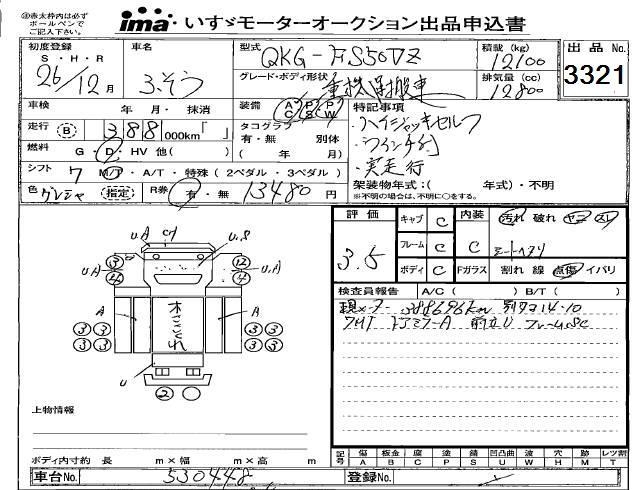 ㊟赤太枠内は必ず
ボールペンで
ご記入下さい。
ima いすゞモーターオークション出品申込書
初度登録
S・H・R
26/12月
車名
ふそう
型式
QKG-FS50VZ
積載(kg)
12100
出品No.
3321
グレード・ボディ形状
重機運搬車
排気量(cc)
12800
車検 年・月・抹消
走行 B 388 000km「 」
燃料 G・D・HV 他( )
シフト 7 M/F・A/T・特殊(2ペダル・3ペダル)
装備 AC PS PW
タコグラフ
有・無 別体
( 年 月)
特記事項
・ハイジャッキセルフ
・ウインチ付
・実走行
架装物年式:( 年式)・不明
※不明の場合は、不明に○をする。
色 グレシャ 指定
R券 有・無 13480円
評価
3.5
キャブ C
フレーム C
ボディ C
内装 C
汚れ 破れ ヤニ スレ
シートヘタリ
Fガラス 割れ 線 点傷 イバリ
検査員報告 A/C( ) B/T( )
現メーター 388696km 別タコ14-10
フルT ドアミラーA 前立U フレームSC
UA
U,S
UA
U,A
3
3
12
12
A
A
木こどれ
3 3
3 3
3 3
3 3
U
2
上物情報
ボディ内寸約 長 m×幅 m×高 m
記号 傷A 板金B 座C 塗P 錆S 凹凸曲U 波W 穴H 跡M レツ割T
車台No. 530448
登録No.